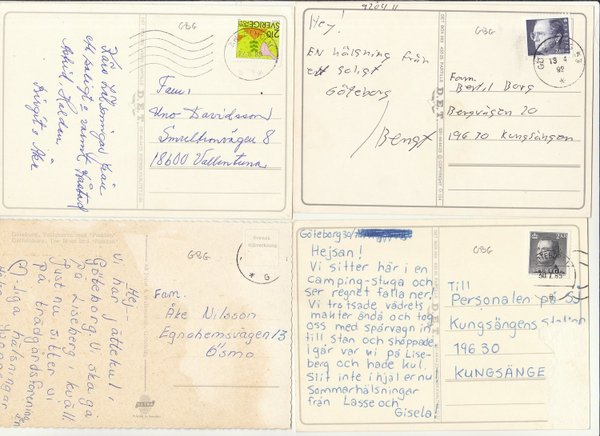 GBG
Kära hälsningar från
ett soligt o varmt Hästad
Astrid Heldan
Birgit o Åke
210
SVERIGE
Fam:
Uno Davidsson
Smultronvägen 8
18600 Vallentuna
9204 11
GBG
Hey,
EN hälsning från
ett soligt
Göteborg
/Bengt
13 4
92
Fam.
Bertil Borg
Bergvägen 20
196 30 Kungsängen
GBG
Hej,
Vi har jättekul i
Göteborg. Vi ska gå
på Liseberg i kväll
just nu sitter vi
på trädgårdsförening
en
-liga hälsningar
Fam.
Åke Nilsson
Egnahemsvägen 13
Ösmo
Göteborg 30/7
GBG
Hejsan!
Vi sitter här i en
camping-stuga och
ser regnet falla ner!
Vi trotsade vädrets
makter ändå och tog
oss med spårvagn in
till stan och shoppade.
Igår var vi på Lise-
berg och hade kul.
Slit inte ihjäl er nu
Sommarhälsningar
från Lasse och
Gisela
Till
Personalen på SJ
Kungsängens station
196 30
KUNGSÄNGE